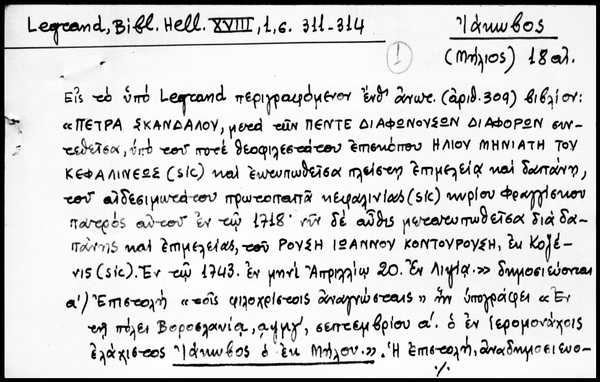 Legrand, Bibl. Hell. XVIII, 1, σ. 311-314
Ἰάκωβος
1
(Μήλιος) 18 αἰ.
Εἰς τό ὑπό Legrand περιγραφόμενον ἐνθ' ἀνωτ. (ἀριθ. 309) βιβλίον:
«ΠΕΤΡΑ ΣΚΑΝΔΑΛΟΥ, μετά τῶν ΠΕΝΤΕ ΔΙΑΦΩΝΟΥΣΩΝ ΔΙΑΦΟΡΩΝ συν-
τεθεῖσα, ὑπό τοῦ ποτέ θεοφιλεστάτου ἐπισκόπου ΗΛΙΟΥ ΜΗΝΙΑΤΗ ΤΟΥ
ΚΕΦΑΛΙΝΕΩΣ (sic) καί ἐκτυπωθεῖσα πλείστῃ ἐπιμελείᾳ καί δαπάνῃ,
τοῦ αἰδεσιμωτάτου πρωτοπαπᾶ κεφαλινίας (sic) κυρίου Φραγγίσκου
πατρός αὐτοῦ ἐν τῷ 1718· νῦν δέ αὖθις μετατυπωθεῖσα διά δα-
πάνης καί ἐπιμελείας, τοῦ ΡΟΥΣΗ ΙΩΑΝΝΟΥ ΚΟΝΤΟΥΡΟΥΣΗ, ἐκ Κοζέ-
νις (sic). Ἐν τῷ 1743. ἐν μηνί Ἀπριλλίῳ 20. Ἐν Λιψίᾳ.» δημοσιεύονται
α') Ἐπιστολή «τοῖς φιλοχρίστοις ἀναγνώσταις» ἥν ὑπογράφει «Ἐν
τῇ πόλει Βοροσλανίᾳ, αψμγ', σεπτεμβρίου α'. ὁ ἐν ἱερομονάχοις
ἐλάχιστος Ἰάκωβος ὁ ἐκ Μήλου.». Ἡ ἐπιστολή, ἀναδημοσιευο-
./.